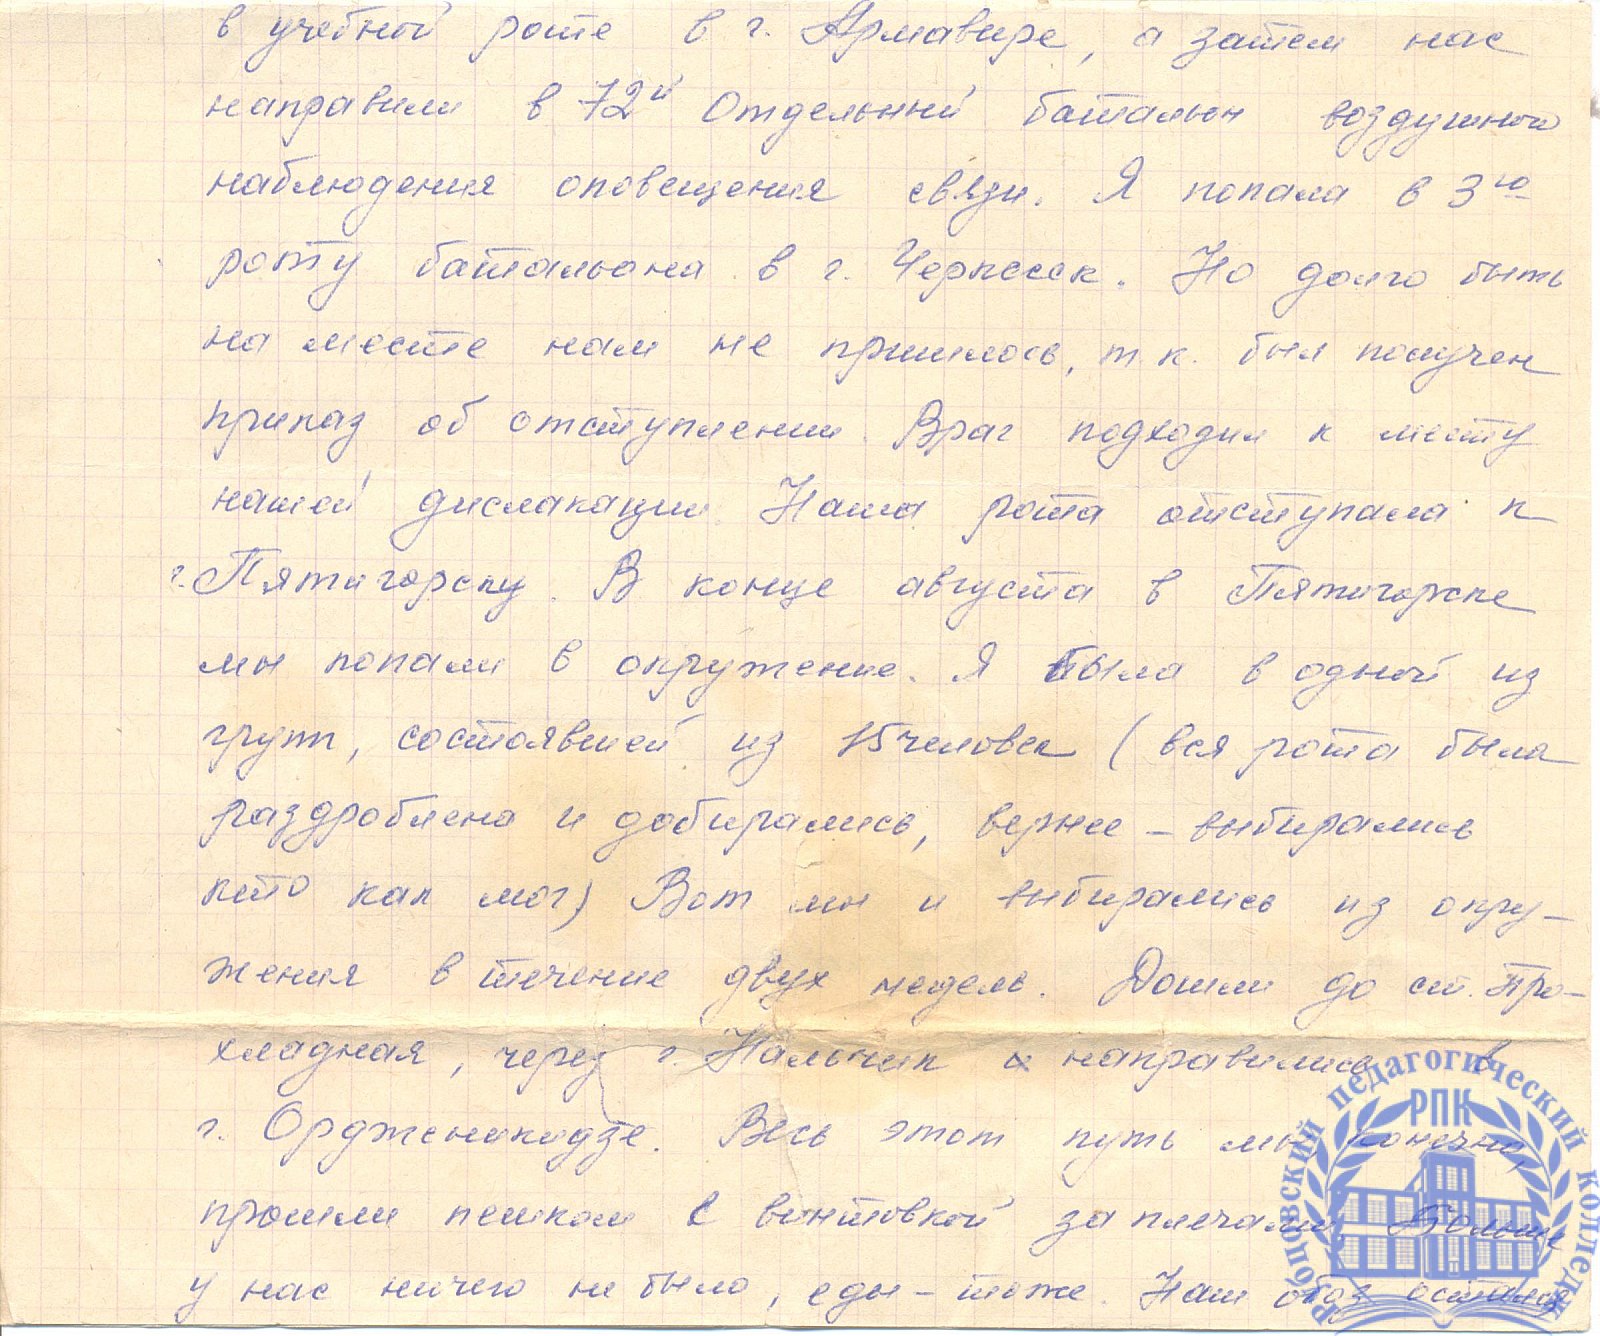 в учебной роте в г. Армавире, а затем нас
направили в 72й Отдельный батальон воздушной
наблюдения оповещения связи. Я попала в 3ю
роту батальона в г. Черкесск. Но долго быть
на месте нам не пришлось, т.к. был получен
приказ об отступлении. Враг подходил к месту
нашей дислакации. Наша рота отступала к
г. Пятигорску. В конце августа в Пятигорске
мы попали в окружение. Я была в одной из
групп, состоявшей из 15 человек (вся рота была
раздроблена и добирались, вернее – выбирались
кто как мог) Вот мы и выбирались из окру-
жения в течение двух недель. Дошли до ст. Про-
хладная, через г. Нальчик и направились в
г. Орджоникидзе. Весь этот путь мы конечно,
прошли пешком с винтовкой за плечами. Больше
у нас ничего не было, еды – тоже. Наш обоз остался
Рубцовский педагогический колледж
РПК